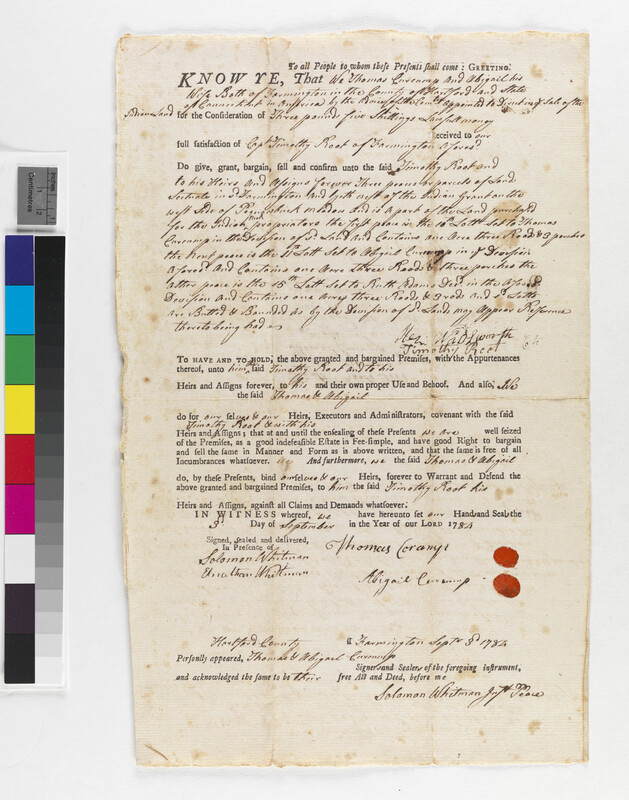 To all People to whom these Presents shall come; GREETING.
KNOW YE, That We Thomas Curcump and Abigail his
Wife Both of Farmington in the County of Hartford and State
of Connecticut in America by the
appointed to
Sale of the
Indian Land
for the Consideration of Three pounds five Shillings Lawfull money
received to our
full satisfaction of Capt Timothy Root of Farmington aforesd
Do give, grant, bargain, sell and confirm unto the said Timothy Root and
to his Heirs and Assigns forever Three peaces or parcels of Land
Scituate in sd Farmington and
of the Indian grant on the
west side of
meadow and is a part of the Land
for the Indian proprietors the first place is the 10th Lott Set to Thomas
Curcump in the Division of sd Land and Contains one Acre three Roods & 3 perches
the Next peace is the 11th Lott Set to Abigail Curcump in sd Division
aforesd and Contains one Acre Three Roods & three perches the
latter peace is the 15th Lott Set to Ruth Adams Decd in the Aforesd
Division and Contains one Acre three Roods & 3 rods and sd Lotts
are Butted & Bounded as by the Division of sd Lands may Appear Reference
thereto being had
Wadsworth
Timothy Root
TO HAVE AND TO HOLD, the above granted and bargained Premises, with the Appurtenances
thereof, unto him the said Timothy Root and to his
Heirs and Assigns forever, to his and their own proper Use and Behoof. And also, We
the said Thomas & Abigail
do for our selves & our Heirs, Executors and Administrators, covenant with the said
Timothy Root & with his
Heirs and Assigns; that at and until the ensealing of these Presents we are well seized
of the Premises, as a good indefeasible Estate in Fee-simple, and have good Right to bargain
and sell the same in Manner and Form as is above written, and that the same is free of all
Incumbrances whatsoever. And furthermore, we the said Thomas & Abigail
do, by these Presents, bind ourselves & our Heirs, forever to Warrant and Defend the
above granted and bargained Premises, to him the said Timothy Root his
Heirs and Assigns, against all Claims and Demands whatsoever.
IN WITNESS whereof, we have hereunto set our Hand and Seal the
3d Day of September in the Year of our LORD 1784
Signed, sealed and delivered,
In Presence of
Solomon Whitman
Elnathan Whitman
Thomas Corcomp
Abigail Curcump
Hartford County ss Farmington Septr 3d 1784
Personally appeared, Thomas & Abigail Curcump
Signers and Sealers of the foregoing instrument,
and acknowledged the same to be their free Act and Deed, before me
Solomon Whitman Just Peace
Inches
Centimetres